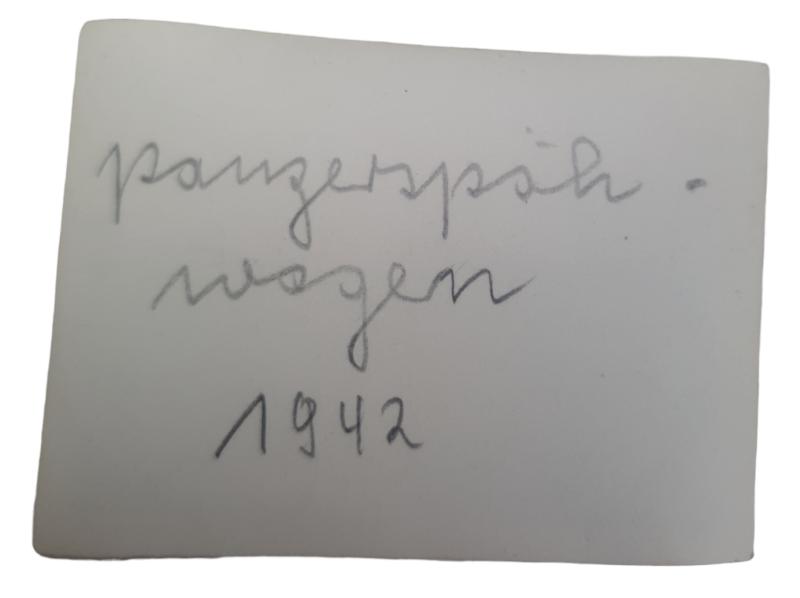 panzerspäh-
wagen
1942